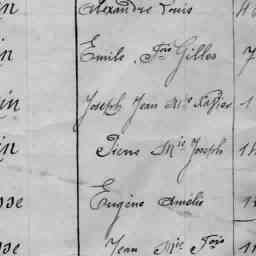 in Alexandre Louis
in Emile. Fois Gilles 7
in Joseph Jean Mie Xavier 1
in Pierre Mie Joseph 1
sse Eugène Amélie 1
sse Jean Mie Fois